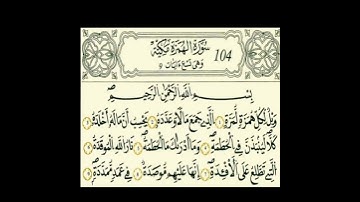 سُورَةُ الْهُمَزَةِ مَكِّيَّةٌ
104
وَهِيَ تِسْعُ آيَاتٍ
بِسْمِ اللَّهِ الرَّحْمَٰنِ الرَّحِيمِ
وَيْلٌ لِّكُلِّ هُمَزَةٍ لُّمَزَةٍ ١ الَّذِي جَمَعَ مَالًا وَعَدَّدَهُ ٢ يَحْسَبُ أَنَّ مَالَهُ أَخْلَدَهُ ٣
كَلَّا لَيُنبَذَنَّ فِي الْحُطَمَةِ ٤ وَمَا أَدْرَاكَ مَا الْحُطَمَةُ ٥ نَارُ اللَّهِ الْمُوقَدَةُ ٦
الَّتِي تَطَّلِعُ عَلَى الْأَفْئِدَةِ ٧ إِنَّهَا عَلَيْهِم مُّؤْصَدَةٌ ٨ فِي عَمَدٍ مُّمَدَّدَةٍ ٩